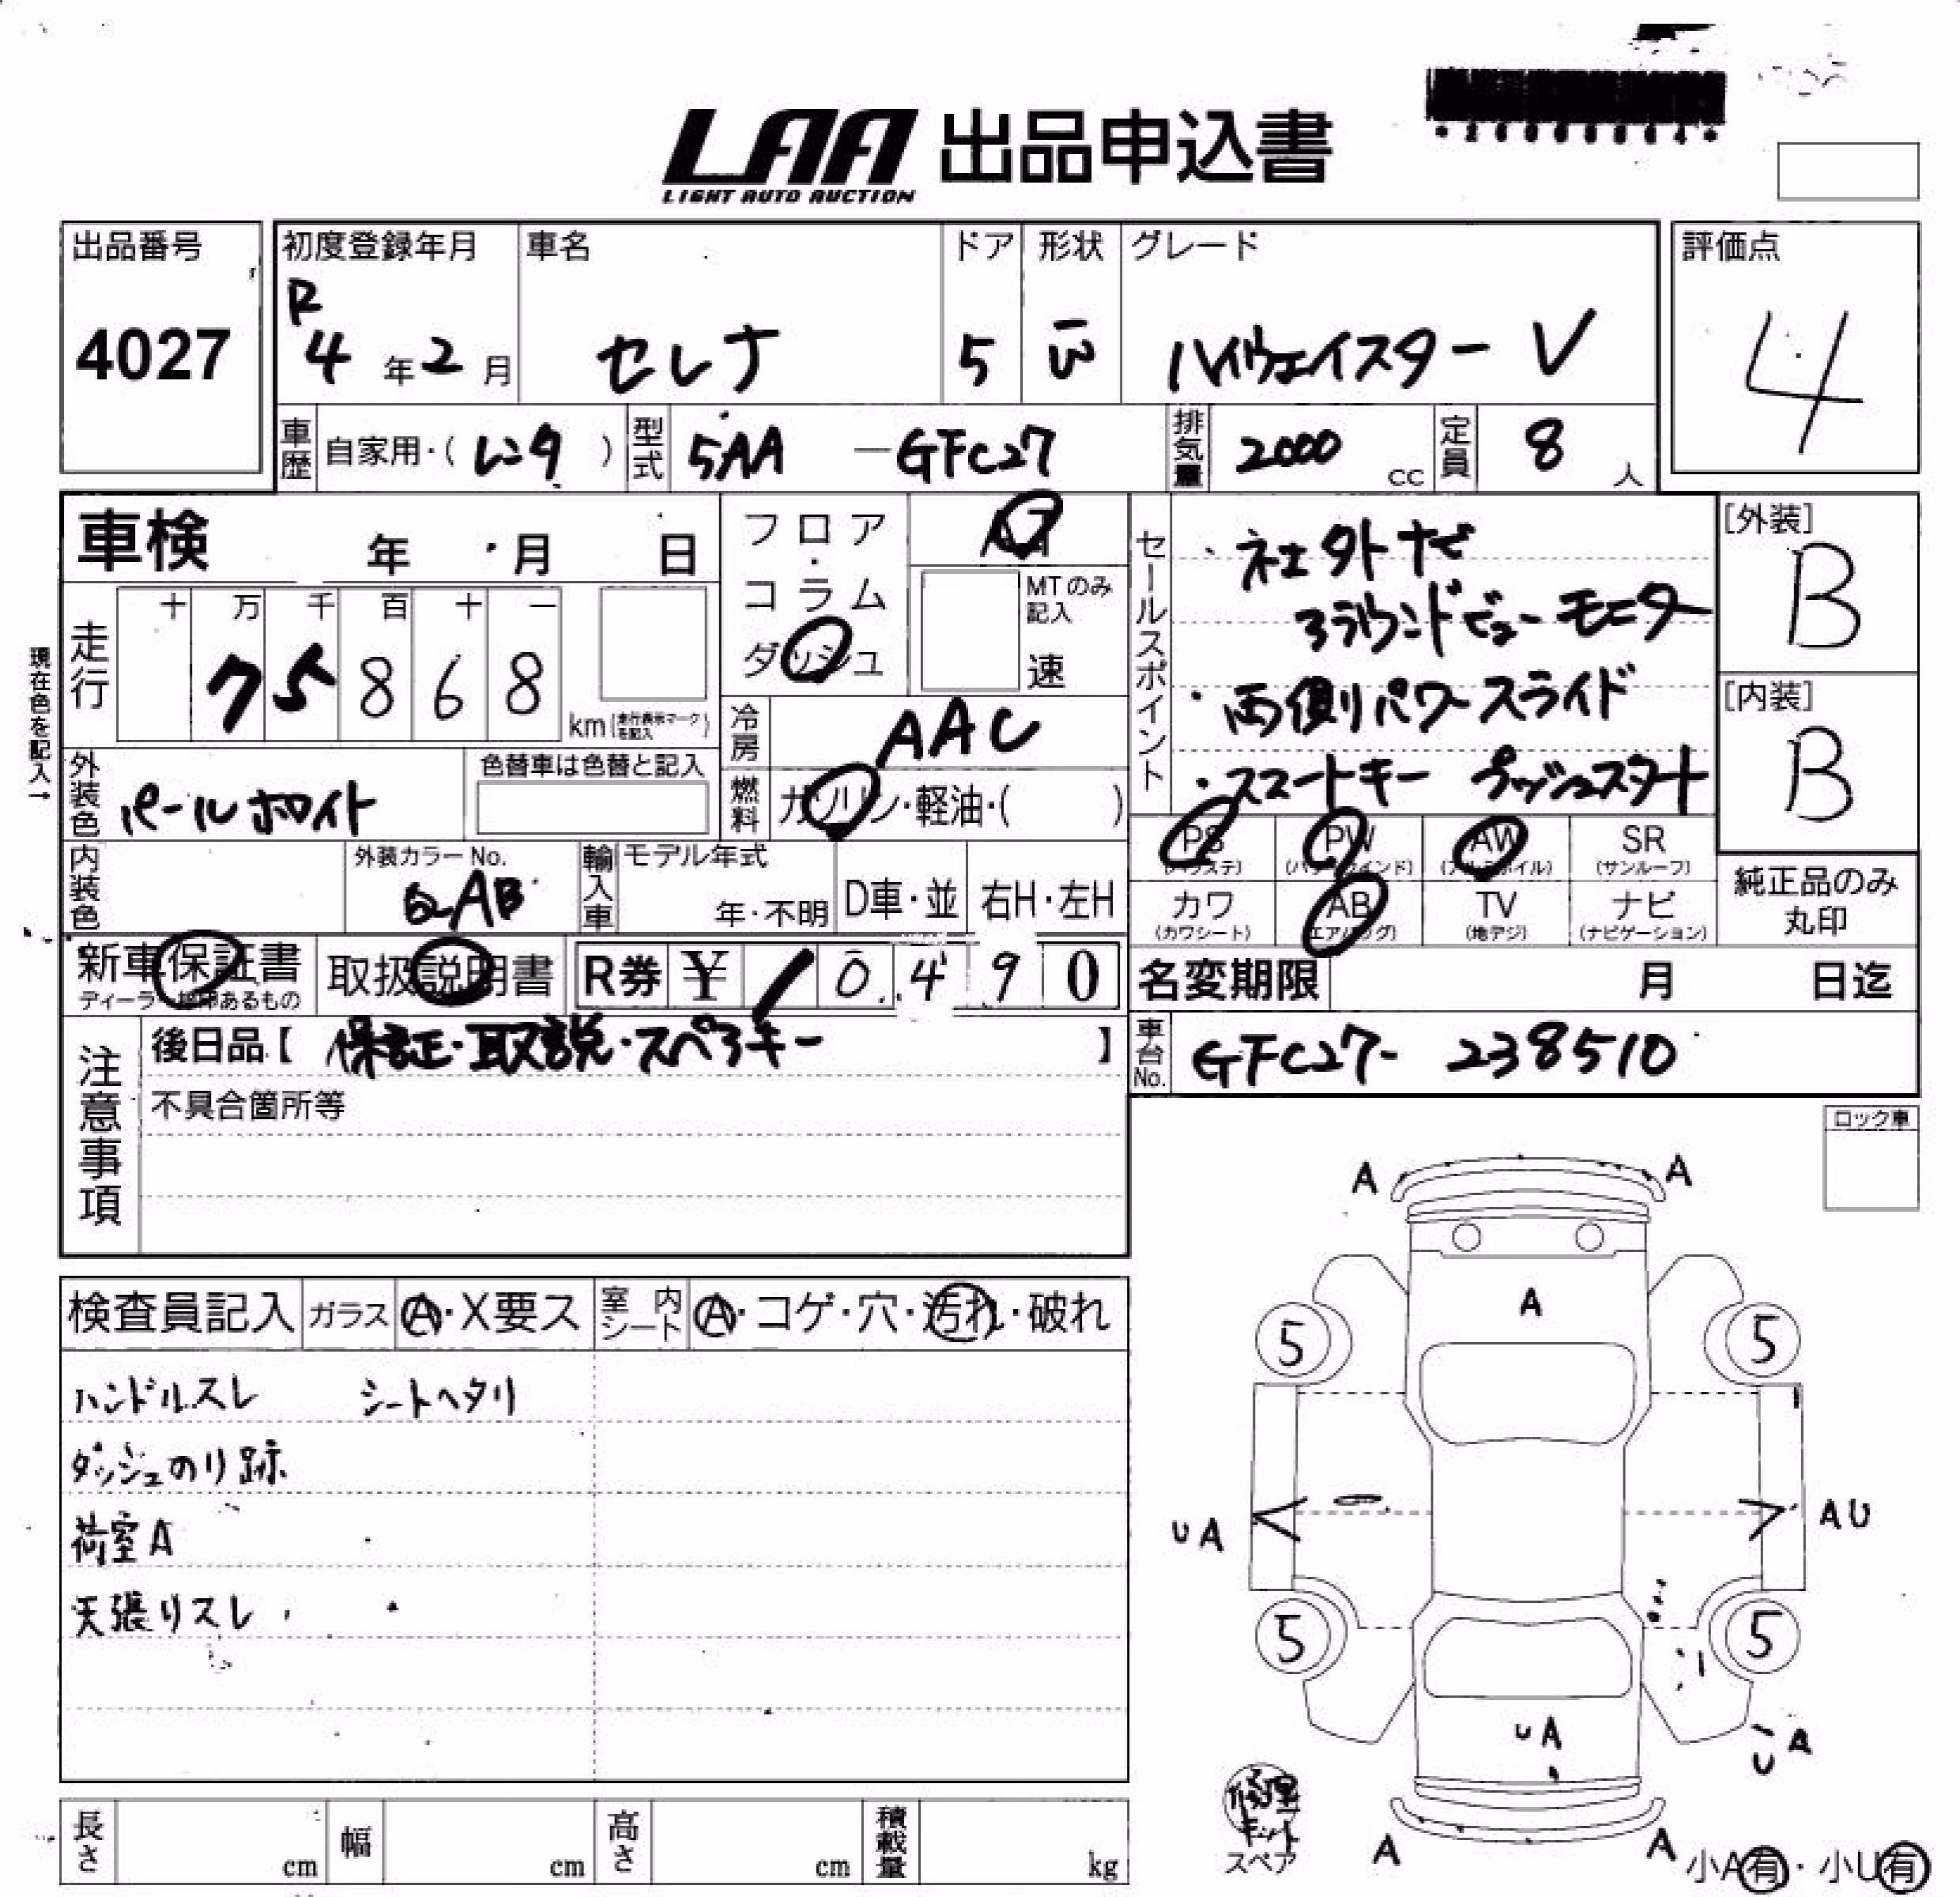 LAA 出品申込書
LIGHT AUTO AUCTION
出品番号 初度登録年月 車名 ドア 形状 グレード 評価点
4027 R4年2月 セレナ 5 ハイウェイスター V 4
車歴 自家用・(レンタ) 型式 5AA-GFC27 排気量 2000cc 定員 8人
車検 年 月 日
フロア・コラム ダッシュ
AT
MTのみ記入 速
現在色を記入→
走行 十 万 千 百 十 一
75868 km(走行表示マークを記入)
冷房 AAC
燃料 ガソリン・軽油・( )
外装色 パールホワイト 色替車は色替と記入
内装色 外装カラーNo. QAB
輸入車 モデル年式 年・不明 D車・並 右H・左H
セールスポイント
・社外ナビ
アラウンドビューモニター
・両側パワースライド
・スマートキー プッシュスタート
[外装] B
[内装] B
PS(パワステ) PW(パワーウインド) AW(アルミホイル) SR(サンルーフ)
カワ(カワシート) AB(エアバッグ) TV(地デジ) ナビ(ナビゲーション)
純正品のみ丸印
新車保証書 ディーラー捺印あるもの 取扱説明書 R券 ¥ 10490
名変期限 月 日迄
注意事項
後日品【保証・取説・スペアキー】
不具合箇所等
車台No. GFC27-238510
ロック車
検査員記入 ガラス A・X要ス 室内シート A・コゲ・穴・汚れ・破れ
ハンドルスレ シートヘタリ
ダッシュのり跡
荷室A
天張りスレ
A A
A
5 5
UA AU
5 5
UA
UA
A A
修理キット
スペア
小A有・小U有
長さ cm 幅 cm 高さ cm 積載量 kg